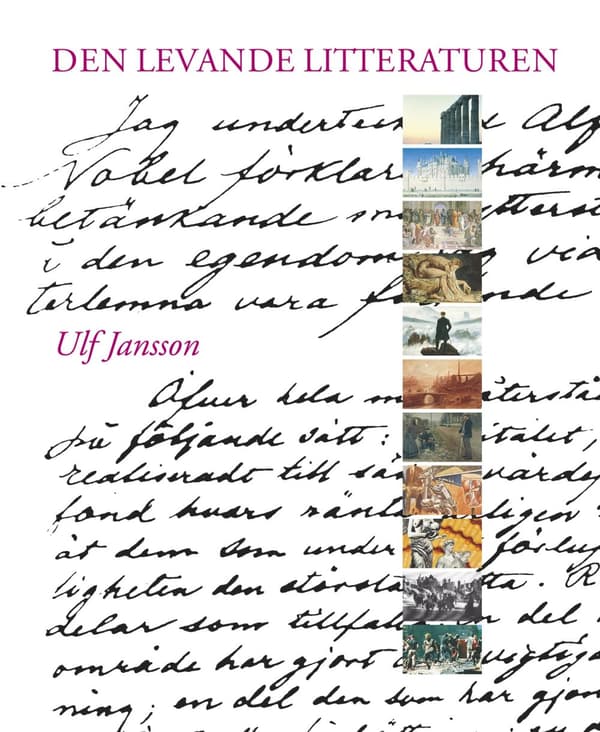 DEN LEVANDE LITTERATUREN
Jag undertec Alf
Nobel förklar härm
betänkande m ytterst
i den egendom jag vid
terlemna vara f nde
Ulf Jansson
Öfver hela m återstå
på följande sätt: pitalet,
realiseradt till sä värde
fond hvars ränta rligen
åt dem som under förlu
ligheten den största tta. R
delar som tillfalla en del
område har gjort d vigtiga
ning; en del den som har gjor